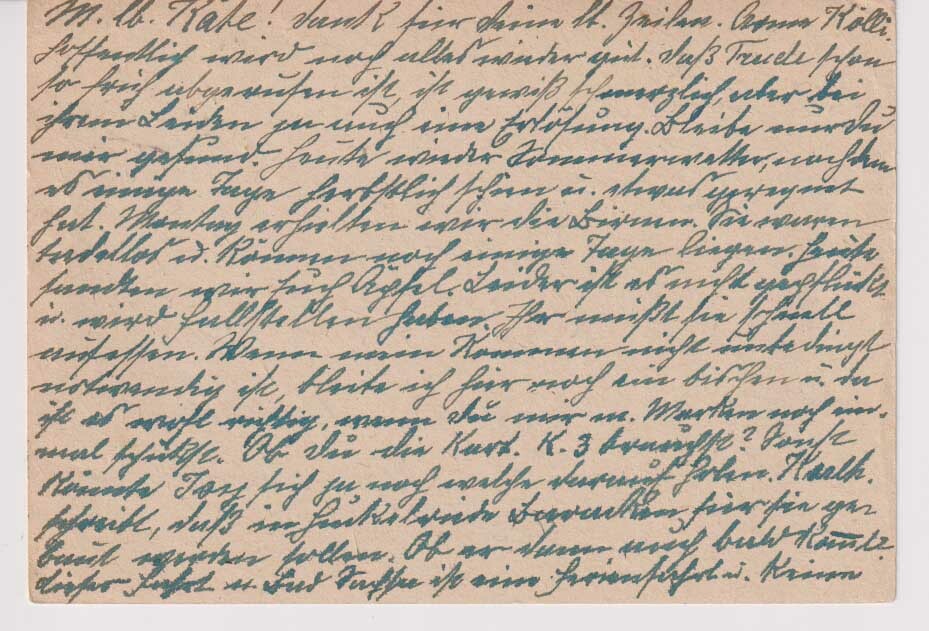 M. lb. Käte! Dank für Deine lb. Zeilen. Arme Kölli.
Hoffentlich wird noch alles wieder gut. Daß Trude schon
so früh abgerufen ist, ist gewiß schmerzlich, aber bei
ihrem Leiden ja auch eine Erlösung. Bleibe nur Du
mir gesund. Heute wieder Sommerwetter, nachdem
es einige Tage herbstlich schien u. etwas geregnet
hat. Montag erhielten wir die Birnen. Sie waren
tadellos u. können noch einige Tage liegen. Heute
sandten wir Euch Äpfel. Leider ist es nicht gepflückt
u. wird Fallstellen haben. Ihr müßt sie schnell
aufessen. Wenn mein Kommen nicht unbedingt
notwendig ist, bleibe ich hier noch ein bischen u. da
ist es wohl richtig, wenn Du mir m. Marken noch ein-
mal schickst. Ob Du die Kart. K. 3 brauchst? Sonst
könnte sich ja noch welche darauf holen.
schreibt, daß in Huckelriede Baracken für sie ge-
baut werden sollen. Ob er dann auch bald kommt?
dieser Fahrt n. Bad Sachsa ist eine Ferienfahrt u. keine